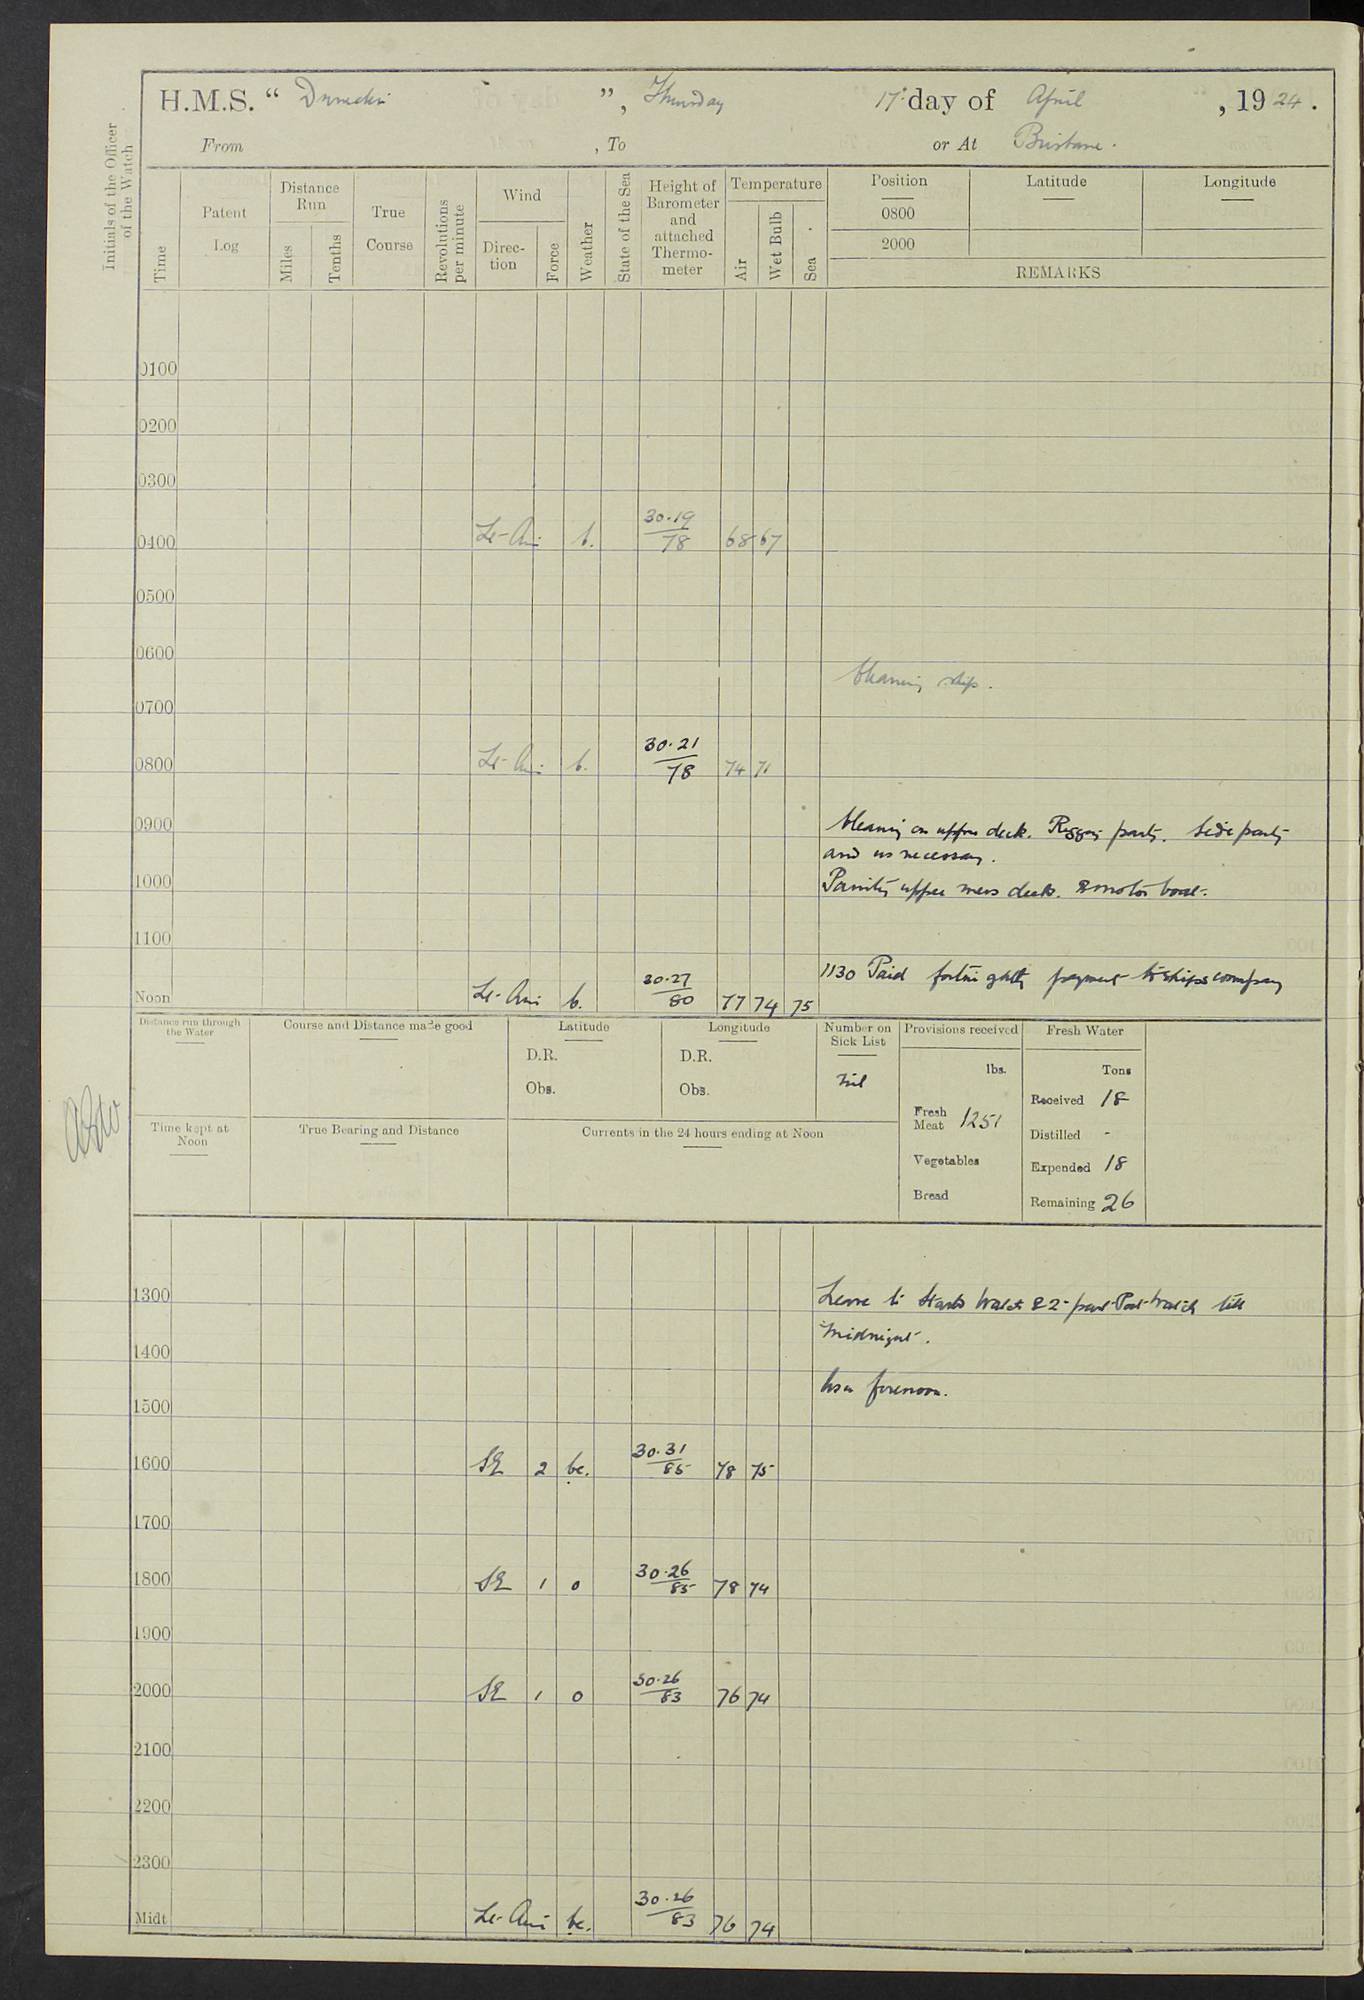 H.M.S. “ Dunedin ”, Thursday 17th day of April , 1924.
From , To or At Brisbane.
Initials of the Officer of the Watch
Time
Patent Log
Distance Run
Miles
Tenths
True Course
Revolutions per minute
Wind
Direc-tion
Force
Weather
State of the Sea
Height of Barometer and attached Thermo-meter
Temperature
Air
Wet Bulb
Sea
Position Latitude Longitude
0800
2000
REMARKS
0100
0200
0300
0400 Lt Airs b. 30.19/78 68 67
0500
0600
Cleaning ship.
0700
0800 Lt Airs b. 30.21/78 74 71
0900 Cleaning on upper deck. Rigging party. Side party
and as necessary.
1000 Painting upper mess deck. & motor boat.
1100
1130 Paid fortnightly payment to ships company
Noon Lt Airs b. 30.27/80 77 74 75
Distance run through the Water
Course and Distance made good
Latitude
D.R.
Obs.
Longitude
D.R.
Obs.
Number on Sick List
Nil
Provisions received
lbs.
Fresh Meat 1251
Vegetables
Bread
Fresh Water
Tons
Received 18
Distilled -
Expended 18
Remaining 26
Time kept at Noon
True Bearing and Distance
Currents in the 24 hours ending at Noon
1300 Leave to Starbd Watch & 2nd part Port Watch till
midnight.
1400
As in forenoon.
1500
1600 SE 2 bc. 30.31/85 78 75
1700
1800 SE 1 o 30.26/85 78 74
1900
2000 SE 1 o 30.26/83 76 74
2100
2200
2300
Midt Lt Airs bc. 30.26/83 76 74